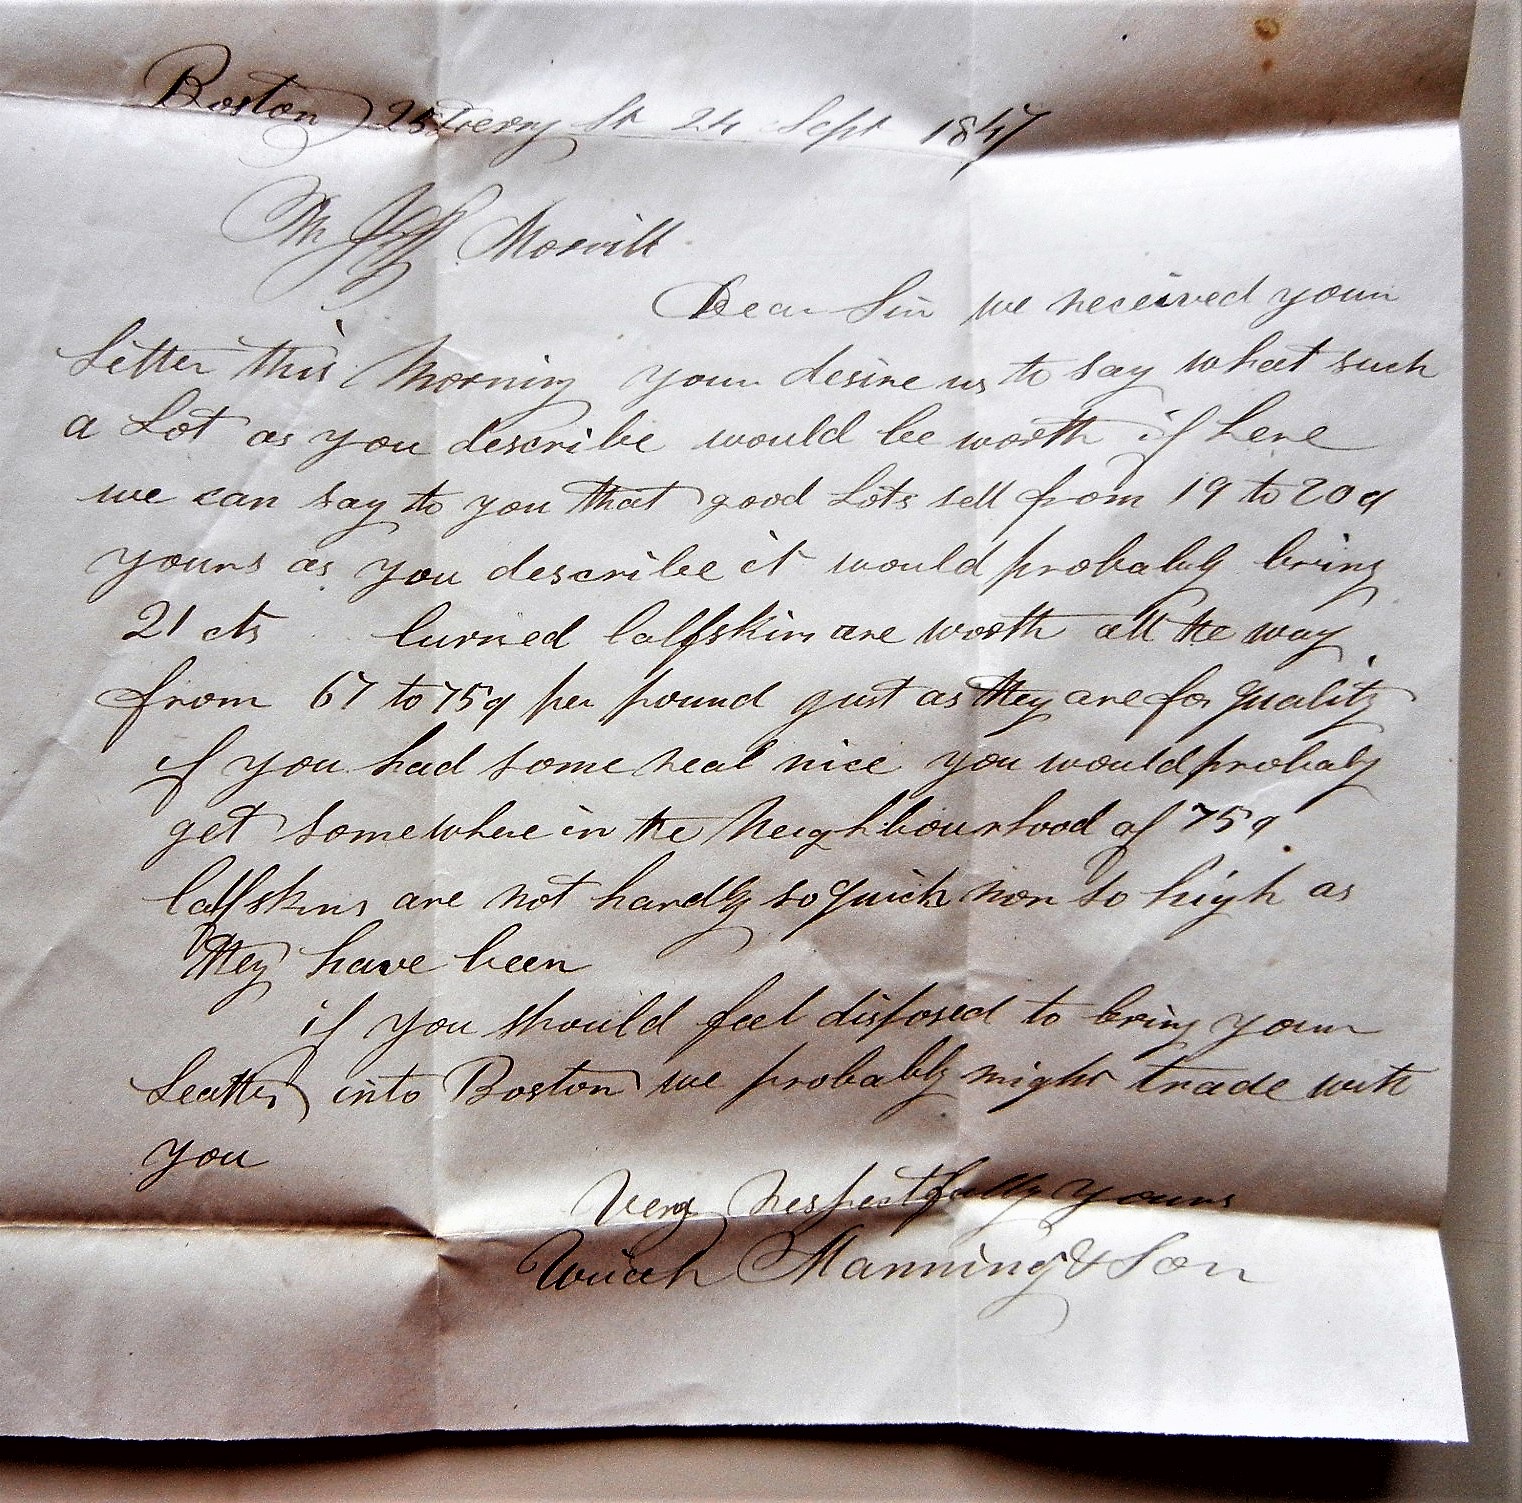 Boston 25 Ferry St 24 Sept 1847
Mr Morrill
Dear Sir we received your
Letter this Morning your desire us to say what such
a Lot as you describe would be worth if here
we can say to you that good Lots sell from 19 to 20 c
yours as you describe it would probably bring
21 cts Curried Calfskins are worth all the way
from 67 to 75 c per pound just as they are for quality
if you had some real nice you would probaly
get somewhere in the Neighbourhood of 75 c
Calfskins are not hardly so quick nor so high as
they have been
if you should feel disposed to bring your
Leather into Boston we probably might trade with
you
Very Respectfully yours
Uriah Manning & Son